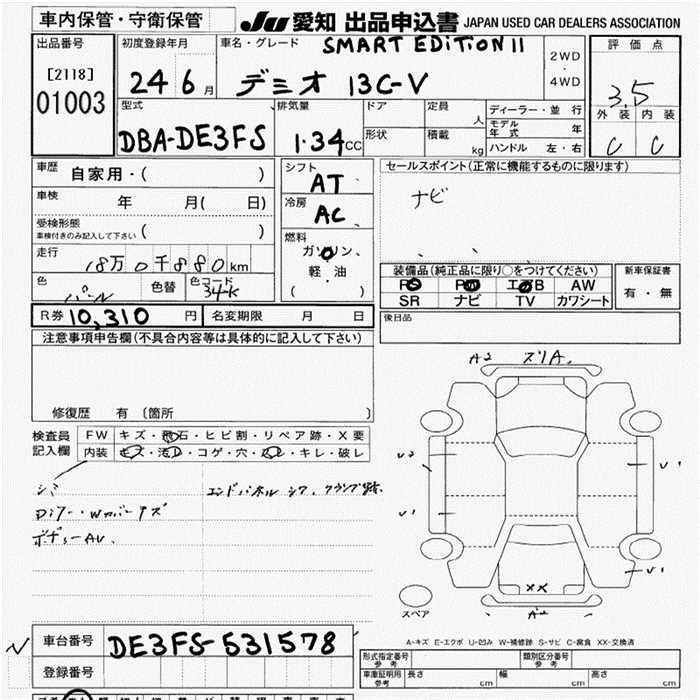 車内保管・守衛保管
JU 愛知 出品申込書 JAPAN USED CAR DEALERS ASSOCIATION
出品番号
[2118]
01003
初度登録年月
24 6 月
車名・グレード SMART EDITION II
デミオ 13C-V
2WD
・
4WD
評価点
3.5
外装 内装
C C
型式
DBA-DE3FS
排気量
1.34 CC
ドア
形状
定員
人
積載
kg
ディーラー・並行
モデル年式 年
ハンドル 左・右
車歴 自家用・( )
車検 年 月( 日)
受検形態
車検付きのみ記入して下さい ( )
走行
18万0千880km
色
パール
色替
色コード
34K
シフト
AT
冷房
AC
燃料
ガソリン、
軽・油
( )
セールスポイント(正常に機能するものに限ります)
ナビ
装備品(純正品に限り○をつけてください)
PS PW エアB AW
SR ナビ TV カワシート
新車保証書
有・無
R券 10,310 円 名変期限 月 日
後日品
注意事項申告欄(不具合内容等は具体的に記入して下さい)
修復歴 有 〔箇所 〕
検査員
記入欄
FW キズ・飛石・ヒビ割・リペア跡・X要
内装 キズ・汚レ・コゲ・穴・スレ・キレ・破レ
シミ
エンドパネル シワ、クランプ跡、
ボディーAU、
A2 スリA、
U2
U1
U1
U1
XX
A2
スペア
A-キズ E-エクボ U-凹み W-補修跡 S-サビ C-腐食 XX-交換済
車台番号 DE3FS-531578
登録番号
形式指定番号
参考
類別区分番号
参考
車庫証明用
参考
長さ 幅 高さ